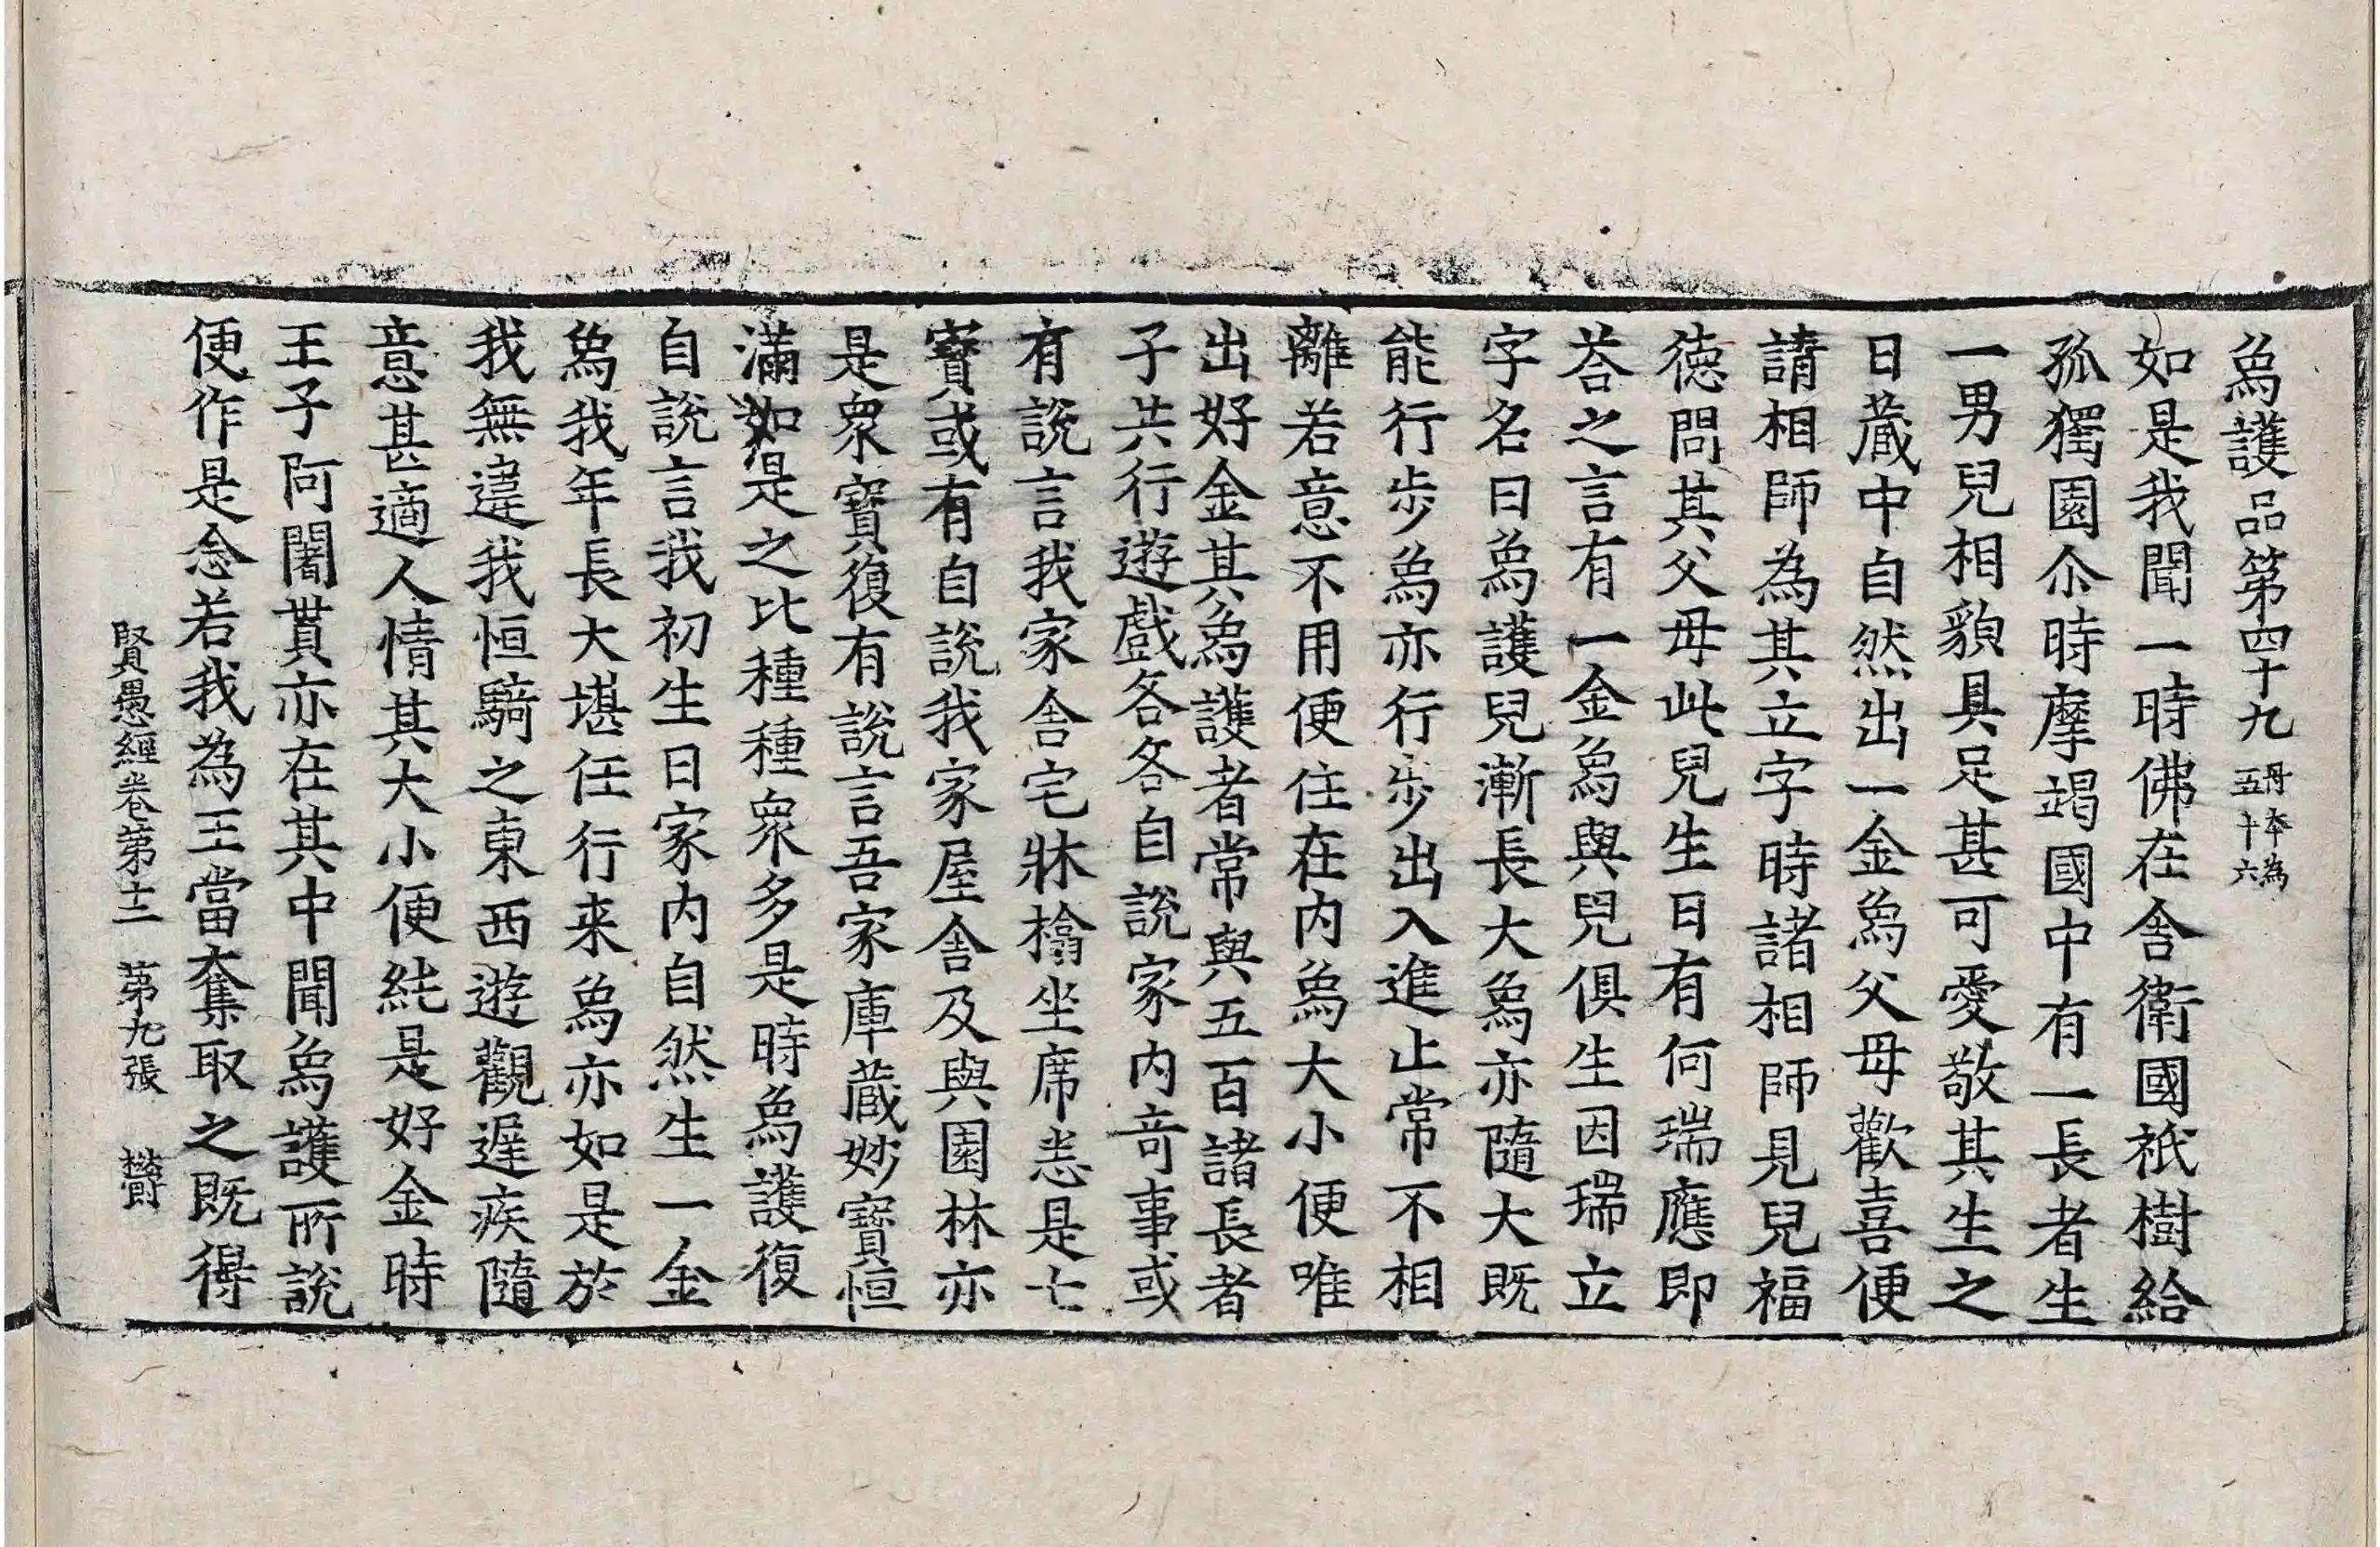 象護品第四十九 丹本為五十六
如是我聞一時佛在舍衛國祇樹給
孤獨園尒時摩竭國中有一長者生
一男兒相貌具足甚可愛敬其生之
日藏中自然出一金象父母歡喜便
請相師為其立字時諸相師見兒福
德問其父母此兒生日有何瑞應即
荅之言有一金象與兒俱生因瑞立
字名曰象護兒漸長大象亦隨大既
能行步象亦行步出入進止常不相
離若意不用便住在內象大小便唯
出好金其象護者常與五百諸長者
子共行遊戲各各自說家內奇事或
有說言我家舍宅牀榻坐席悉是七
寶或有自說我家屋舍及與園林亦
是衆寶復有說言吾家庫藏妙寶恒
滿如是之比種種衆多是時象護復
自說言我初生日家內自然生一金
象我年長大堪任行来象亦如是於
我無違我恒騎之東西遊觀遲疾隨
意甚適人情其大小便純是好金時
王子阿闍貰亦在其中聞象護所說
便作是念若我為王當奪取之既得
賢愚經卷第十二 第九張 欝